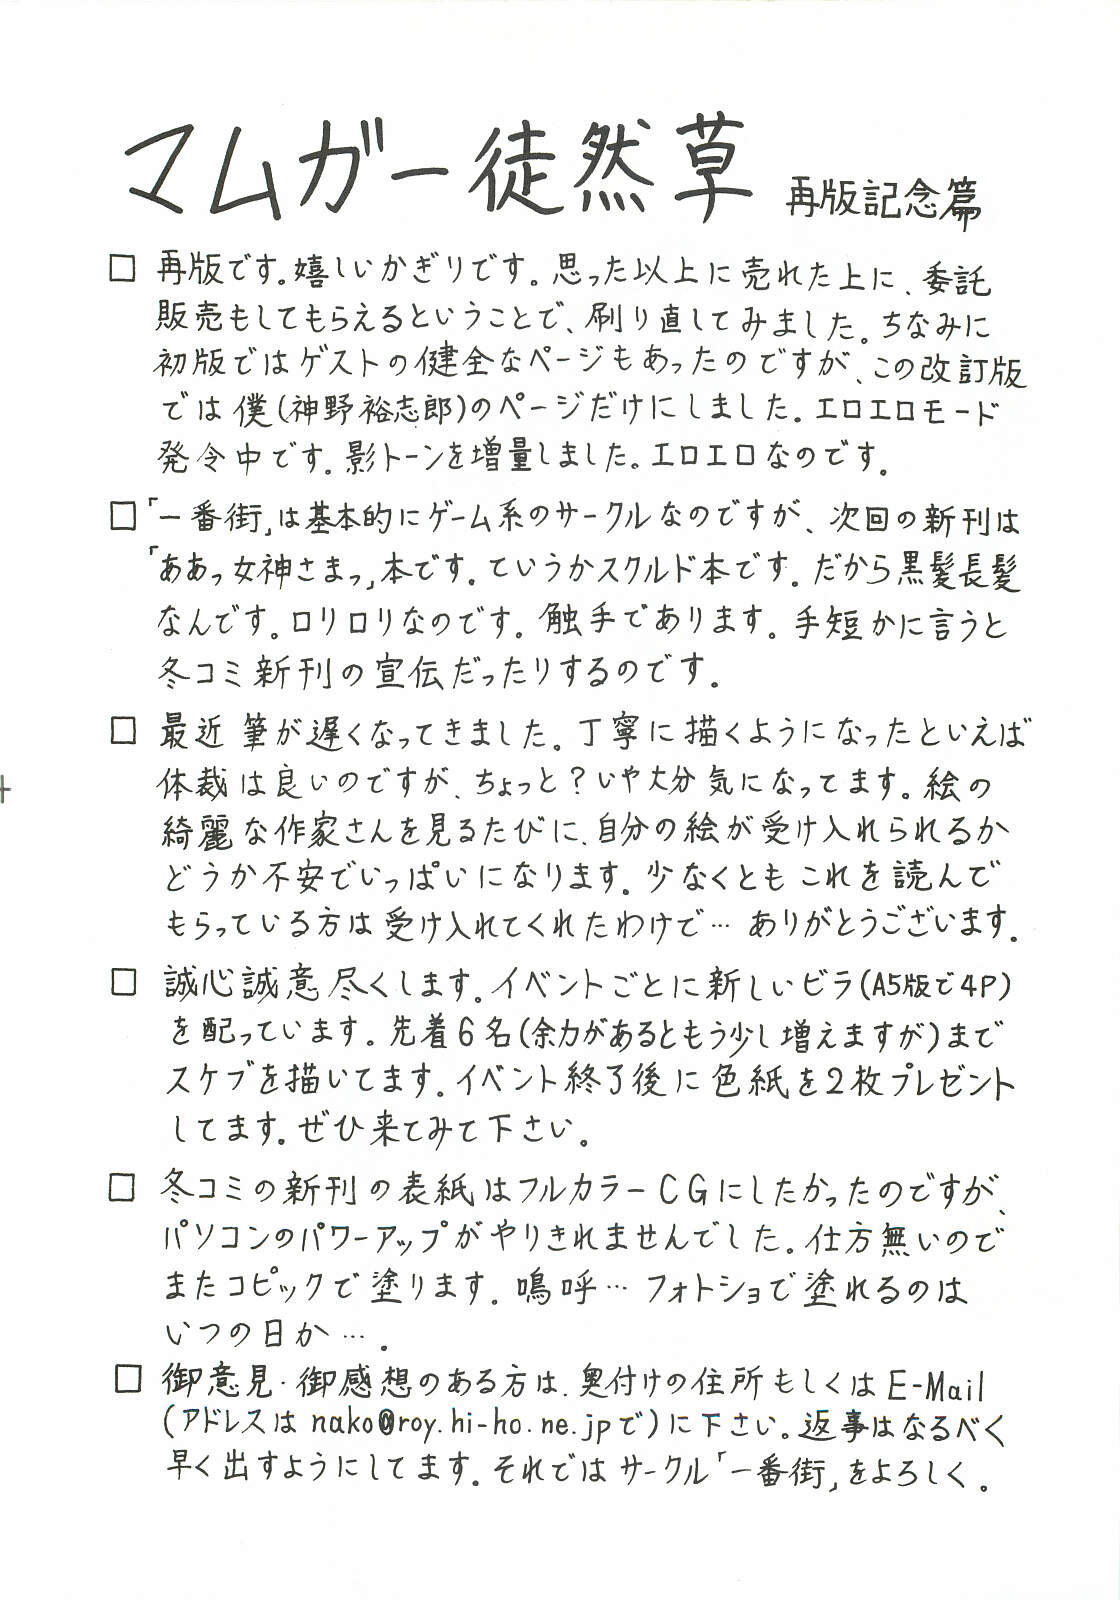 マムガー徒然草 再版記念篇
□ 再版です。嬉しいかぎりです。思った以上に売れた上に、委託
販売もしてもらえるということで、刷り直してみました。ちなみに
初版ではゲストの健全なページもあったのですが、この改訂版
では僕(神野裕志郎)のページだけにしました。エロエロモード
発令中です。影トーンを増量しました。エロエロなのです。
□「一番街」は基本的にゲーム系のサークルなのですが、次回の新刊は
「ああっ女神さまっ」本です。ていうかスクルド本です。だから黒髪長髪
なんです。ロリロリなのです。触手であります。手短かに言うと
冬コミ新刊の宣伝だったりするのです。
□ 最近筆が遅くなってきました。丁寧に描くようになったといえば
体裁は良いのですが、ちょっと?いや大分気になってます。絵の
綺麗な作家さんを見るたびに、自分の絵が受け入れられるか
どうか不安でいっぱいになります。少なくともこれを読んで
もらっている方は受け入れてくれたわけで…ありがとうございます。
□ 誠心誠意尽くします。イベントごとに新しいビラ(A5版で4P)
を配っています。先着6名(余力があるともう少し増えますが)まで
スケブを描いてます。イベント終了後に色紙を2枚プレゼント
してます。ぜひ来てみて下さい。
□ 冬コミの新刊の表紙はフルカラーCGにしたかったのですが、
パソコンのパワーアップがやりきれませんでした。仕方無いので
またコピックで塗ります。嗚呼…フォトショで塗れるのは
いつの日か…。
□ 御意見・御感想のある方は、奥付けの住所もしくはE-Mail
(アドレスは nako@roy.hi-ho.ne.jpで)に下さい。返事はなるべく
早く出すようにしてます。それではサークル「一番街」をよろしく。